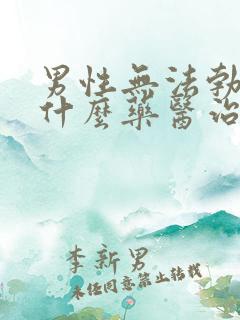 男性無法勃
什麼藥醫治
李新男
未任同意禁止轉載